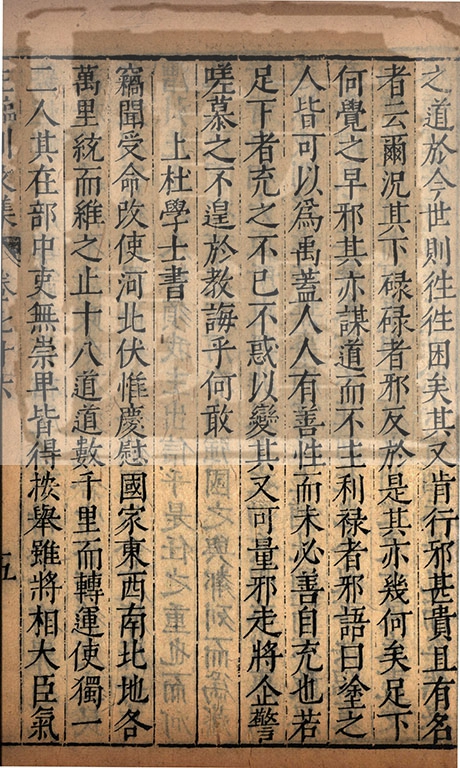 之道於今世則往往困矣其又肯行邪甚貴且有名
者云爾況其下碌碌者邪反於是其亦幾何矣足下
何覺之早邪其亦謀道而不主利祿者邪語曰塗之
人皆可以為禹蓋人人有善性而未必善自充也若
足下者充之不已不惑以變其又可量邪走將企警
嗟慕之不遑於教誨乎何敢
上杜學士書
竊聞受命改使河北伏惟慶慰國家東西南北地各
萬里統而維之止十八道道數千里而轉運使獨一
二人其在部中吏無崇卑皆得按舉雖將相大臣氣
王臨川文集 卷七十六 五